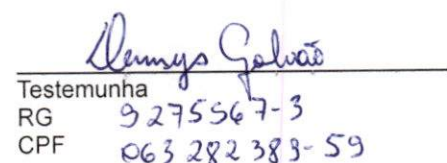 Dennys Galvão
Testemunha
RG 9275567-3
CPF 063 282 383-59